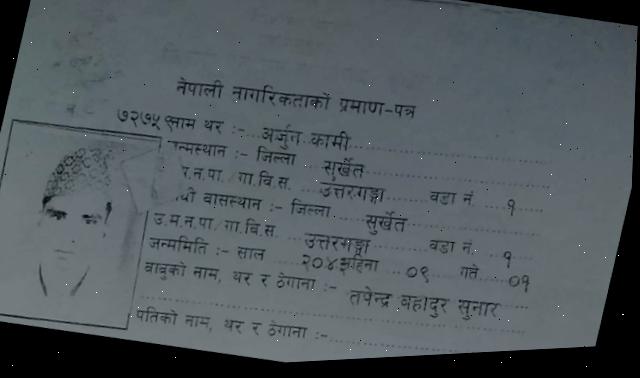 नेपाली नागरिकताको प्रमाण-पत्र
७२७५ नाम थर :- अर्जुन कामी
जन्मस्थान :- जिल्ला सुर्खेत
न.पा./गा.वि.स. उत्तरगङ्गा वडा नं. १
बासस्थान :- जिल्ला सुर्खेत
उ.म.न.पा./गा.वि.स. उत्तरगङ्गा वडा नं. १
जन्ममिति :- साल महिना ०९ गते ०१
बाबुको नाम, थर र ठेगाना :- तपेन्द्र बहादुर सुनार
पतिको नाम, थर र ठेगाना :-